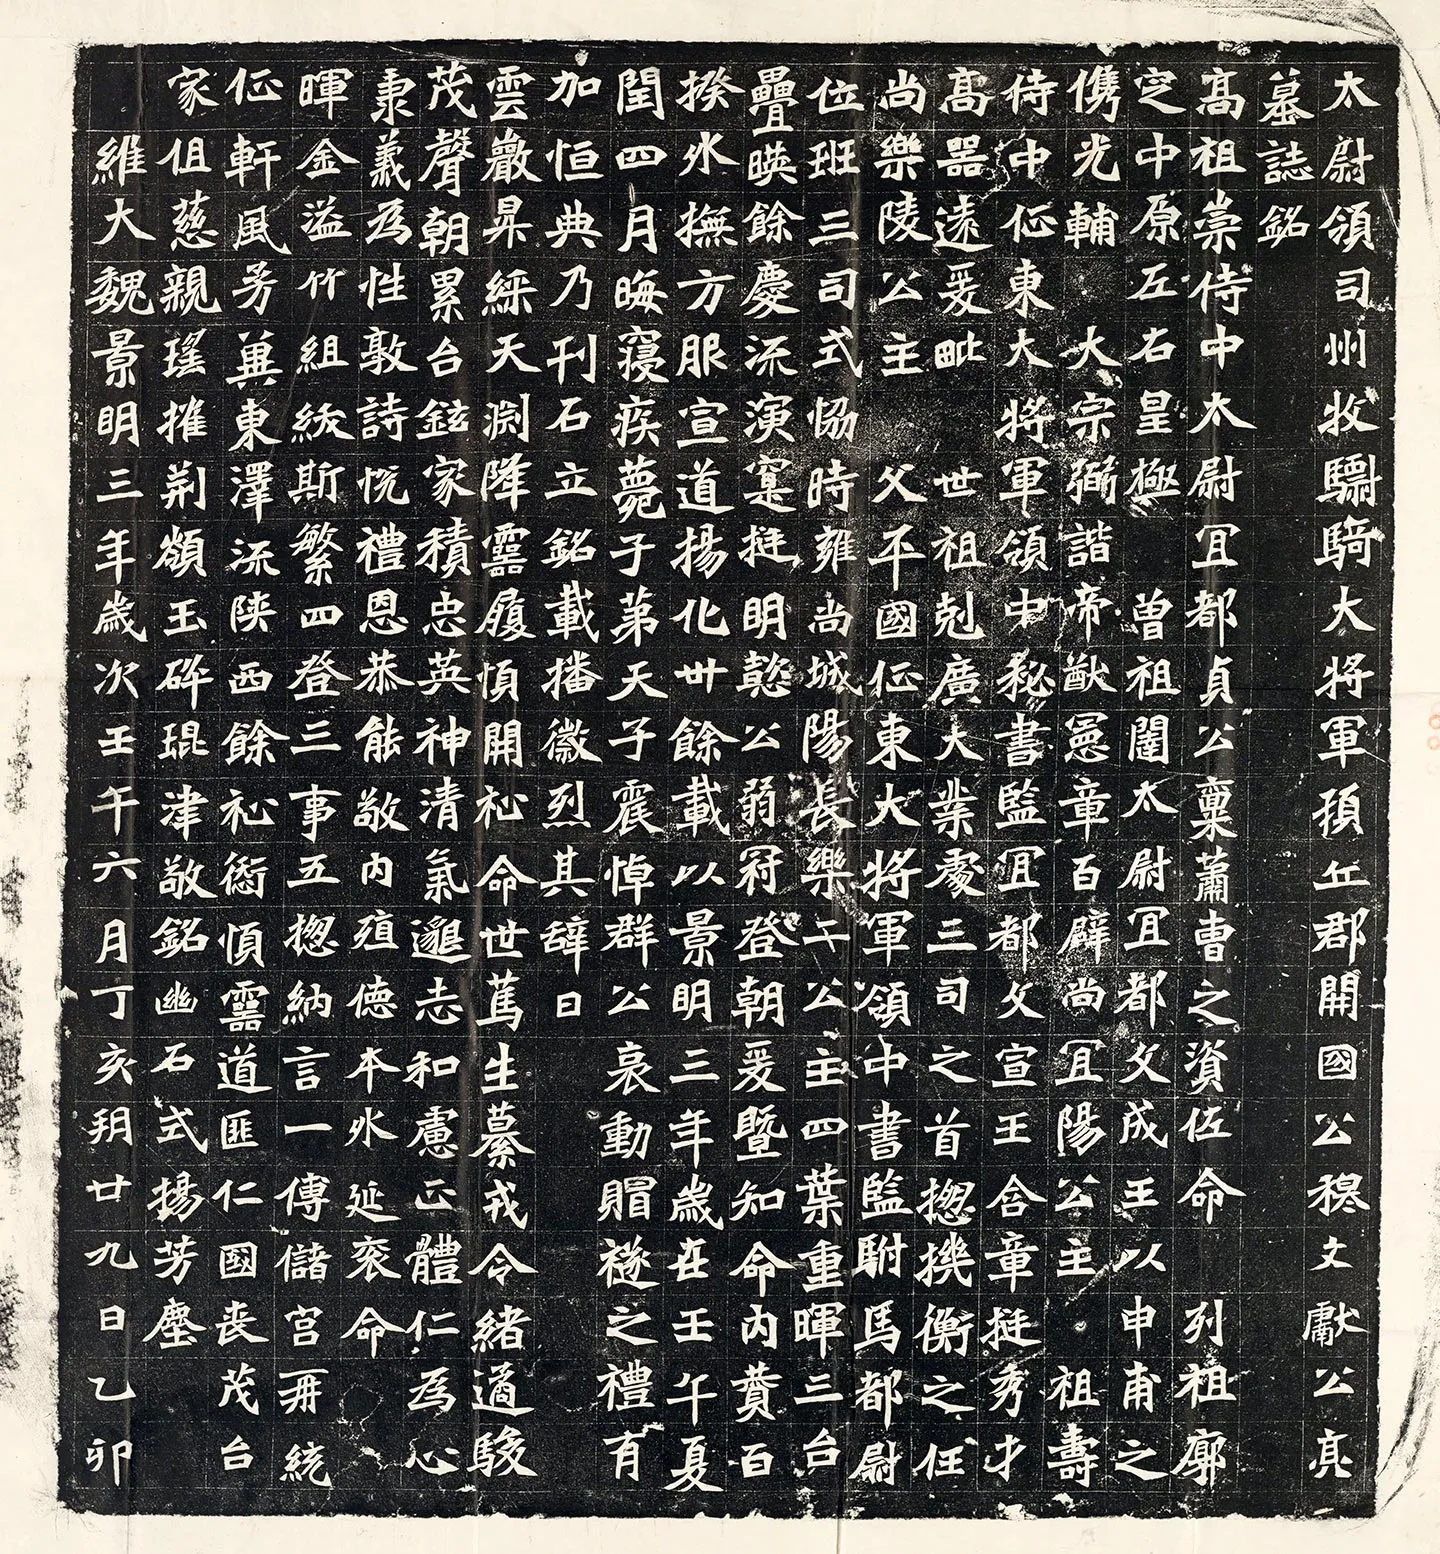 太尉領司州牧驃騎大將軍頓丘郡開國公穆文獻公亮
墓誌銘
高祖崇侍中太尉冝都貞公稟蕭曹之資佐命　列祖廓
定中原左右皇極　曾祖闥太尉冝都文成王以申甫之
儁光輔　大宗弼諧帝猷憲章百辟尚冝陽公主　祖壽
侍中征東大將軍領中秘書監冝都文宣王含章挺秀才
高器遠爰毗　世祖剋廣大業處三司之首揔機衡之任
尚樂陵公主　父平國征東大將軍領中書監駙馬都尉
位班三司式協時雍尚城陽長樂二公主四葉重暉三台
疊暎餘慶流演寔挺明懿公弱冠登朝爰暨知命內贊百
揆外撫方服宣道揚化卅餘載以景明三年歲在壬午夏
閏四月晦寢疾薨于苐天子震悼群公哀動賵襚之禮有
加恒典乃刊石立銘載播徽烈其辭曰
雲巖昇綵天淵降靈履順開祉命世篤生纂戎令緒遹駿
茂聲朝累台鉉家積忠英神清氣邈志和慮正體仁為心
秉義為性敦詩悅禮恩恭能敬內殖德本外延袞命
暉金溢竹組綬斯繁四登三事五揔納言一傅儲宮再統
征軒風芳冀東澤流陝西餘祉愆順靈道匪仁國喪茂台
家徂慈親瑤摧荊巔玉碎琨津敬銘幽石式揚芳塵
維大魏景明三年歲次壬午六月丁亥朔廿九日乙卯